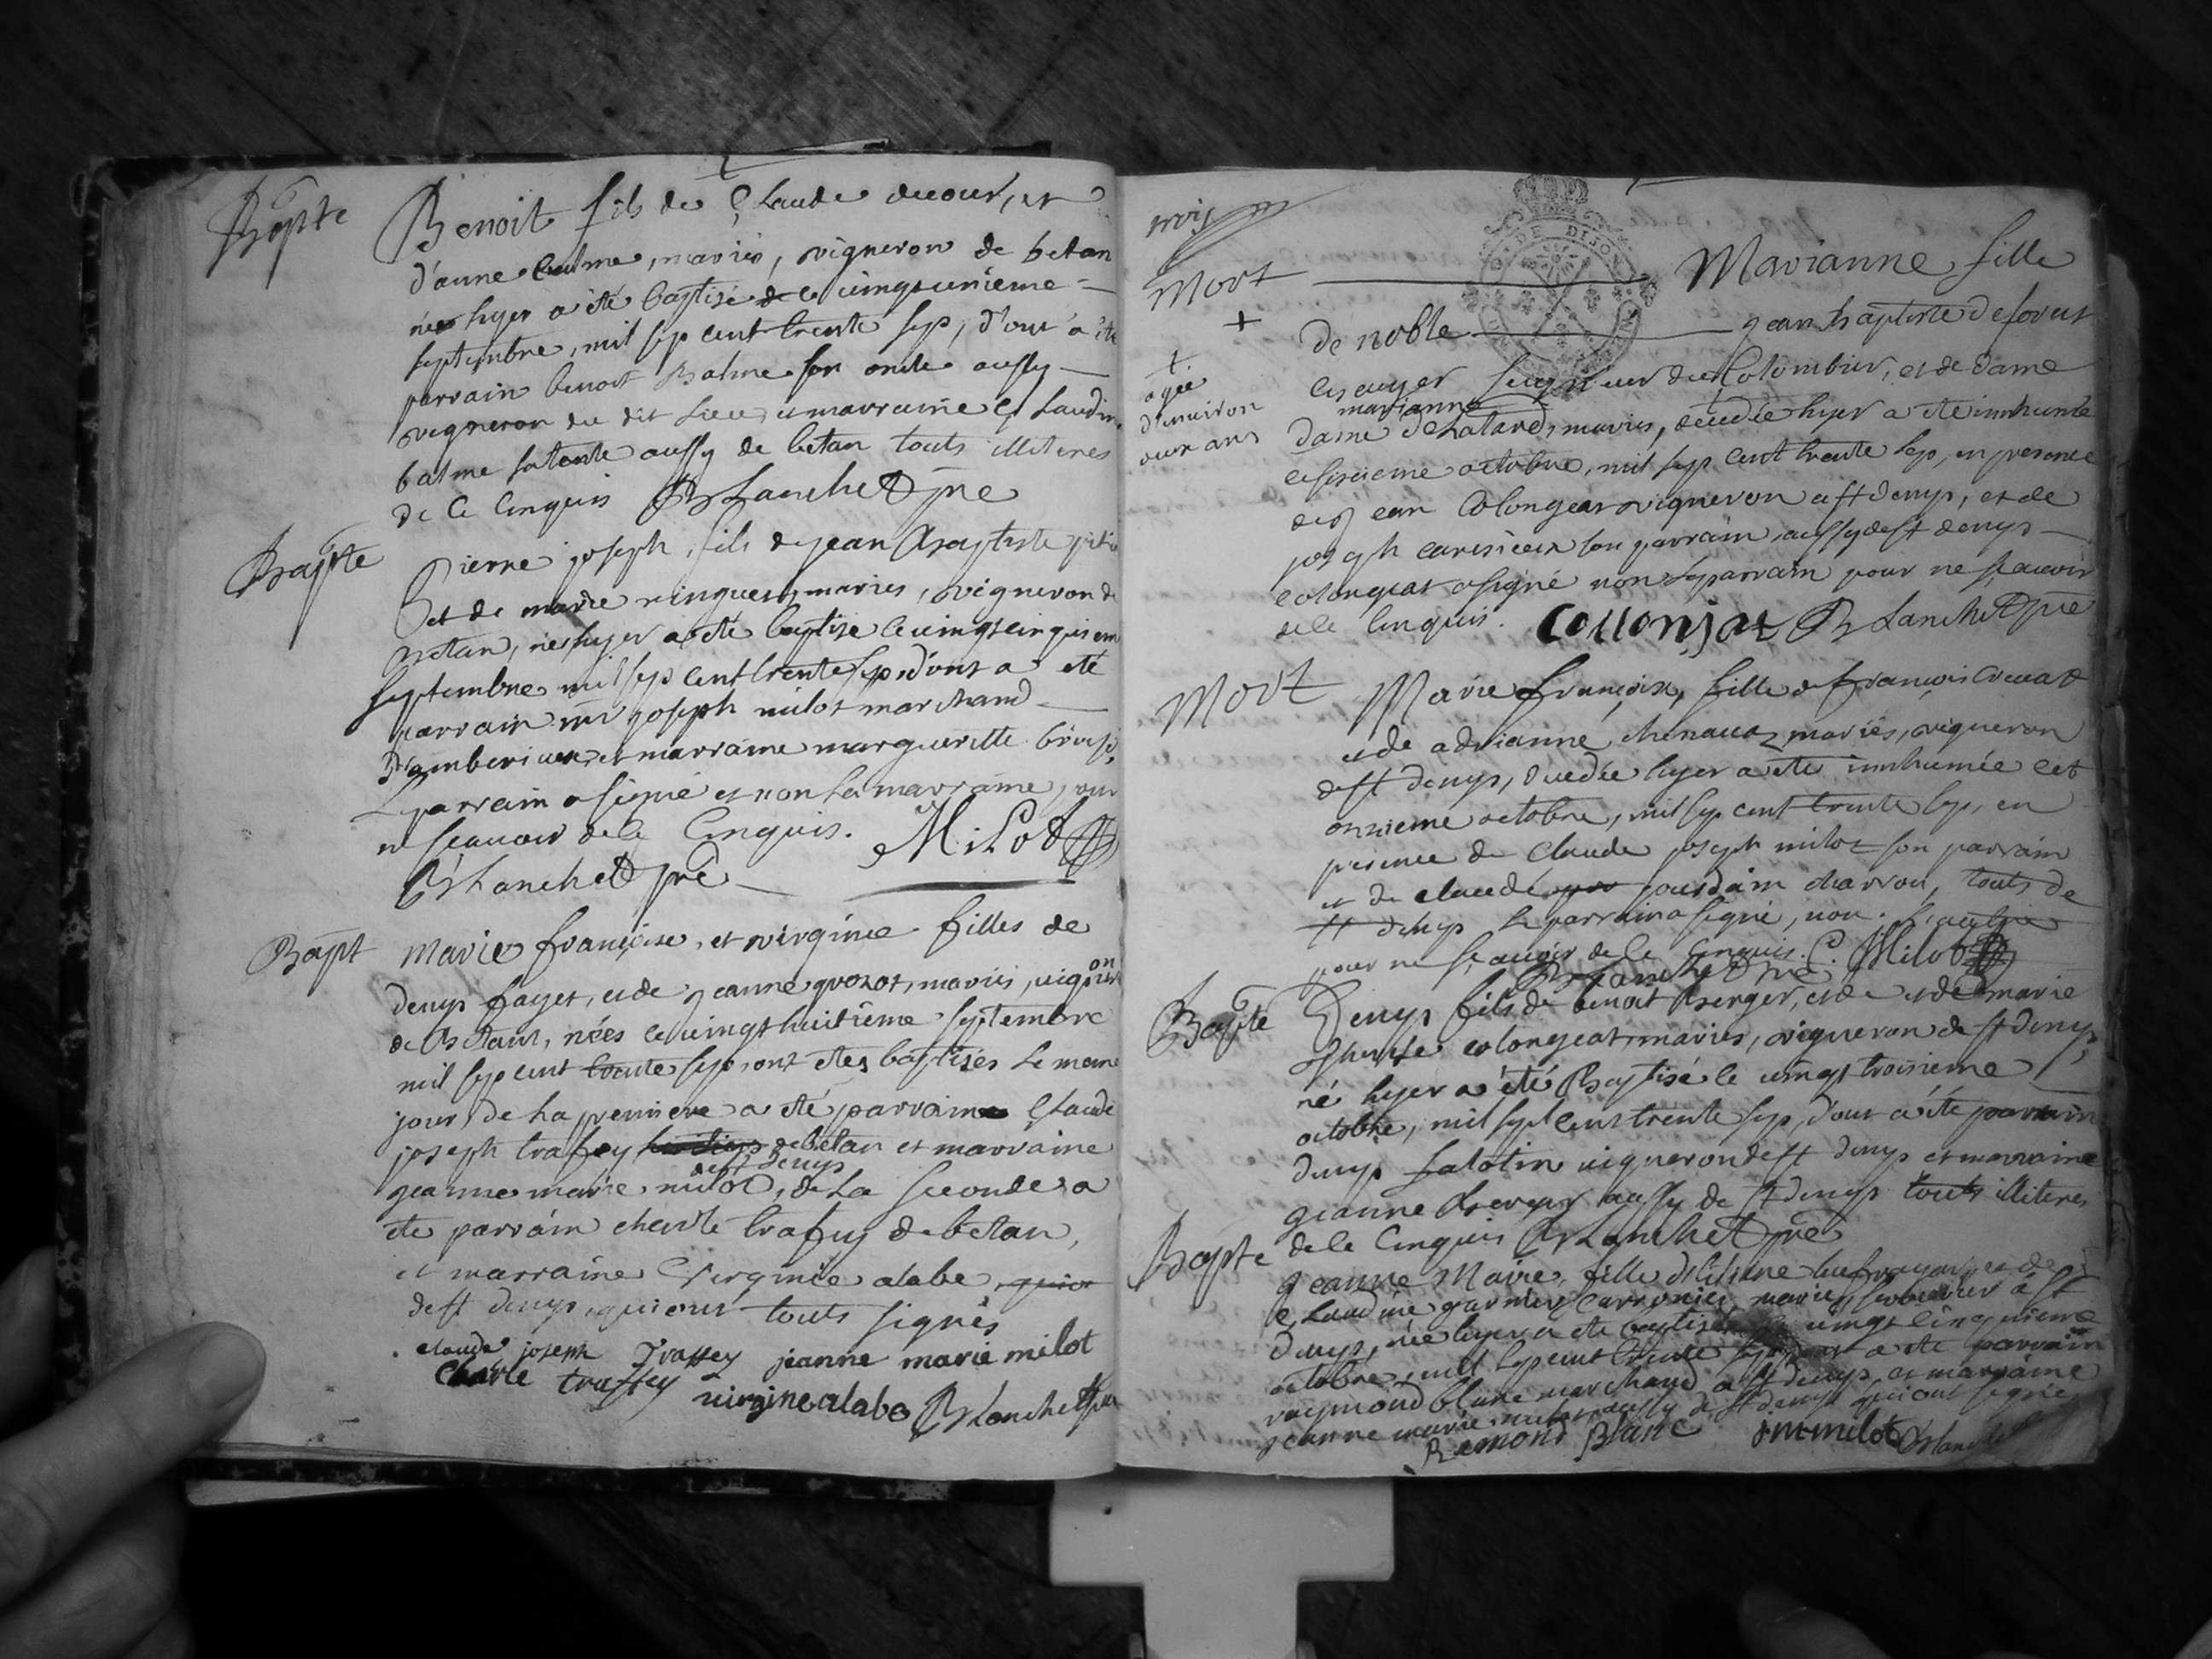 Bapte
Benoit fils de Claude decour, et
d'anne balme, mariés, vigneron de betan
né hyer a été baptisé le vingtunieme
septembre, mil sep cent trente sep, d'ont a été
parrain benoit Balme son oncle aussy
vigneron du dit lieu et marraine Claudine
balme sa tente aussy de betan touts illiteres
de ce enquis Blanchet pre
Bapte
Pierre joseph, fils de jean Baptiste
et de marie ninguet, mariés, vigneron de
Betan, né hyer a été baptisé le vingtcinquieme
septembre mil sep cent trente sep, d'ont a été
parrain mr joseph milot marchand
D'amberieux et marraine margueritte
Le parrain a signé et non la marraine pour
ne scauoir de ce enquis. Milot
Blanchet pre
Bapt
Marie françoise, et virginie filles de
denys fayet, et de jeanne quozot, mariés, vigneron
de Betan, nées le vingt huitième septembre
mil sep cent trente sep, ont étés baptisés le meme
jour, de la premiere a été parrain Claude
joseph trafey de betan et marraine
de st denys
jeanne marie milot, de la seconde a
été parrain charle trafey de betan,
et marraine Virginie alabe
de st denys, qui ont touts signés
claude joseph Traffey jeanne marie milot
Charle traffey virgine alabe Blanchet pre
trois
Mort
+
+
agée
d'enuiron
onze ans
DE DIJON
Marianne, fille
de noble jean baptiste deforest
escuyer seigneur du Colombier, et de Dame
marianne
Dame Delatard, mariés, décédée hyer a été inhumée
le sixieme octobre, mil sep cent trente sep, en presence
de jean Colongeat vigneron a st denys, et de
joseph caresieux son parrain, aussy de st denys
colongeat a signé non le parrain pour ne scauoir
de ce enquis. Collonjat Blanchet pre
Mort
Marie françoise, fille de françois Cruat
et de adrianne chenauaz mariés, vigneron
de st denys, décédée hyer a été innhumée cet
onzieme octobre, mil sep cent trente sep, en
presence de Claude joseph milot son parrain
et de claude jourdain charron, touts de
st denys Le parrain a signé, non l'autre
pour ne scauoir de ce enquis. C. J Milot
Blanchet pre
Bapte
Denys fils de benoit Berger, et de et de marie
colongeat mariés, vigneron de st denys,
né hyer a été Baptisé le vingt troisieme
octobre, mil sept cent trente sep, d'ont a été parrain
denys salotin vigneron de st denys et marraine
jeanne Berger aussy de st denys touts illiteres
de ce enquis Blanchet pre
Bapte
jeanne Marie, fille d'etiene et de
Claudine garnier mariés, a st
denys, née hyer a été baptisée le vingt cinquieme
octobre, mil sep cent trente sep, d'ont a été parrain
raymond blanc marchand a st denys et marraine
jeanne marie milot aussy de st denys qui ont signés
Remond Blanc jm milot Blanchet